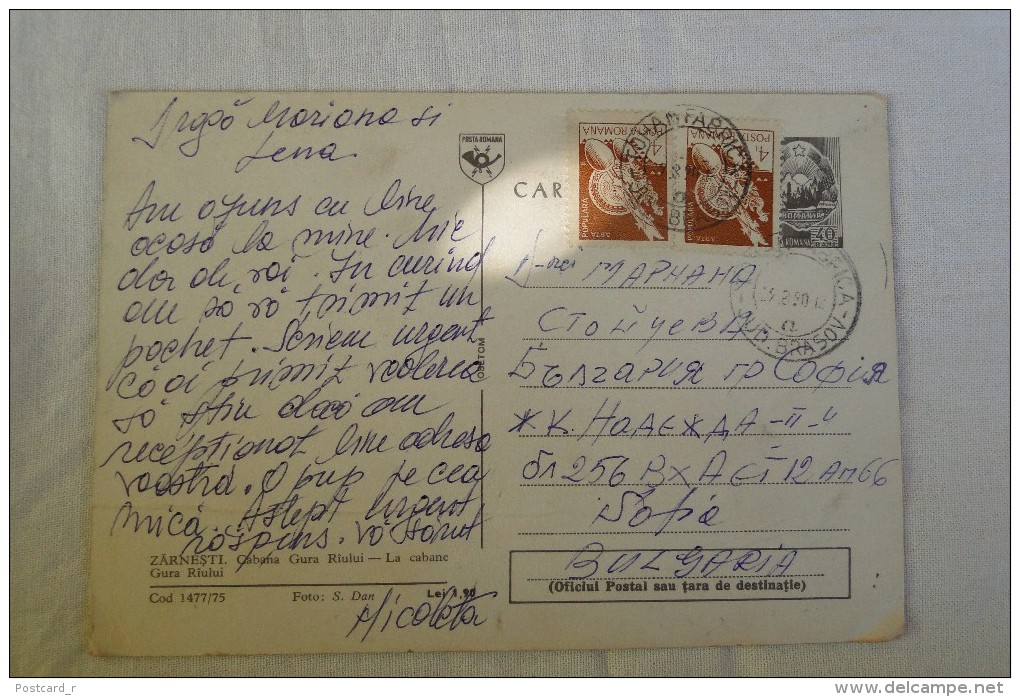 Dragă Mariana si
Lena
Am ajuns cu bine
acasă la mine. Mie
dor de voi. In curind
am să vă trimit un
pachet. Scriem urgent
că ai primit vederea
să știu dacă am
recepționat bine adresa
voastră. O pup pe cea
mică. Aștept urgent
răspuns. Vă sărut
Nicoleta
ZĂRNEȘTI. Cabana Gura Rîului — La cabane
Gura Rîului
Cod 1477/75 Foto: S. Dan Lei 1,90
POSTA ROMANA
OBETOM
CAR
POSTA ROMANA
ARTA POPULARA
POSTA ROMANA
ARTA POPULARA
ROMANA
40
BANI
JUD. BRASOV
МАРИАНА
СТОЙЧЕВА
БЪЛГАРИЯ ГР СОФИЯ
Ж.К. НАДЕЖДА-II-Ч
бл 256 ВХ А ЕТ 12 АП 66
Sofia
BULGARIA
(Oficiul Postal sau țara de destinație)
Postcard_r
http://www.delcampe.net